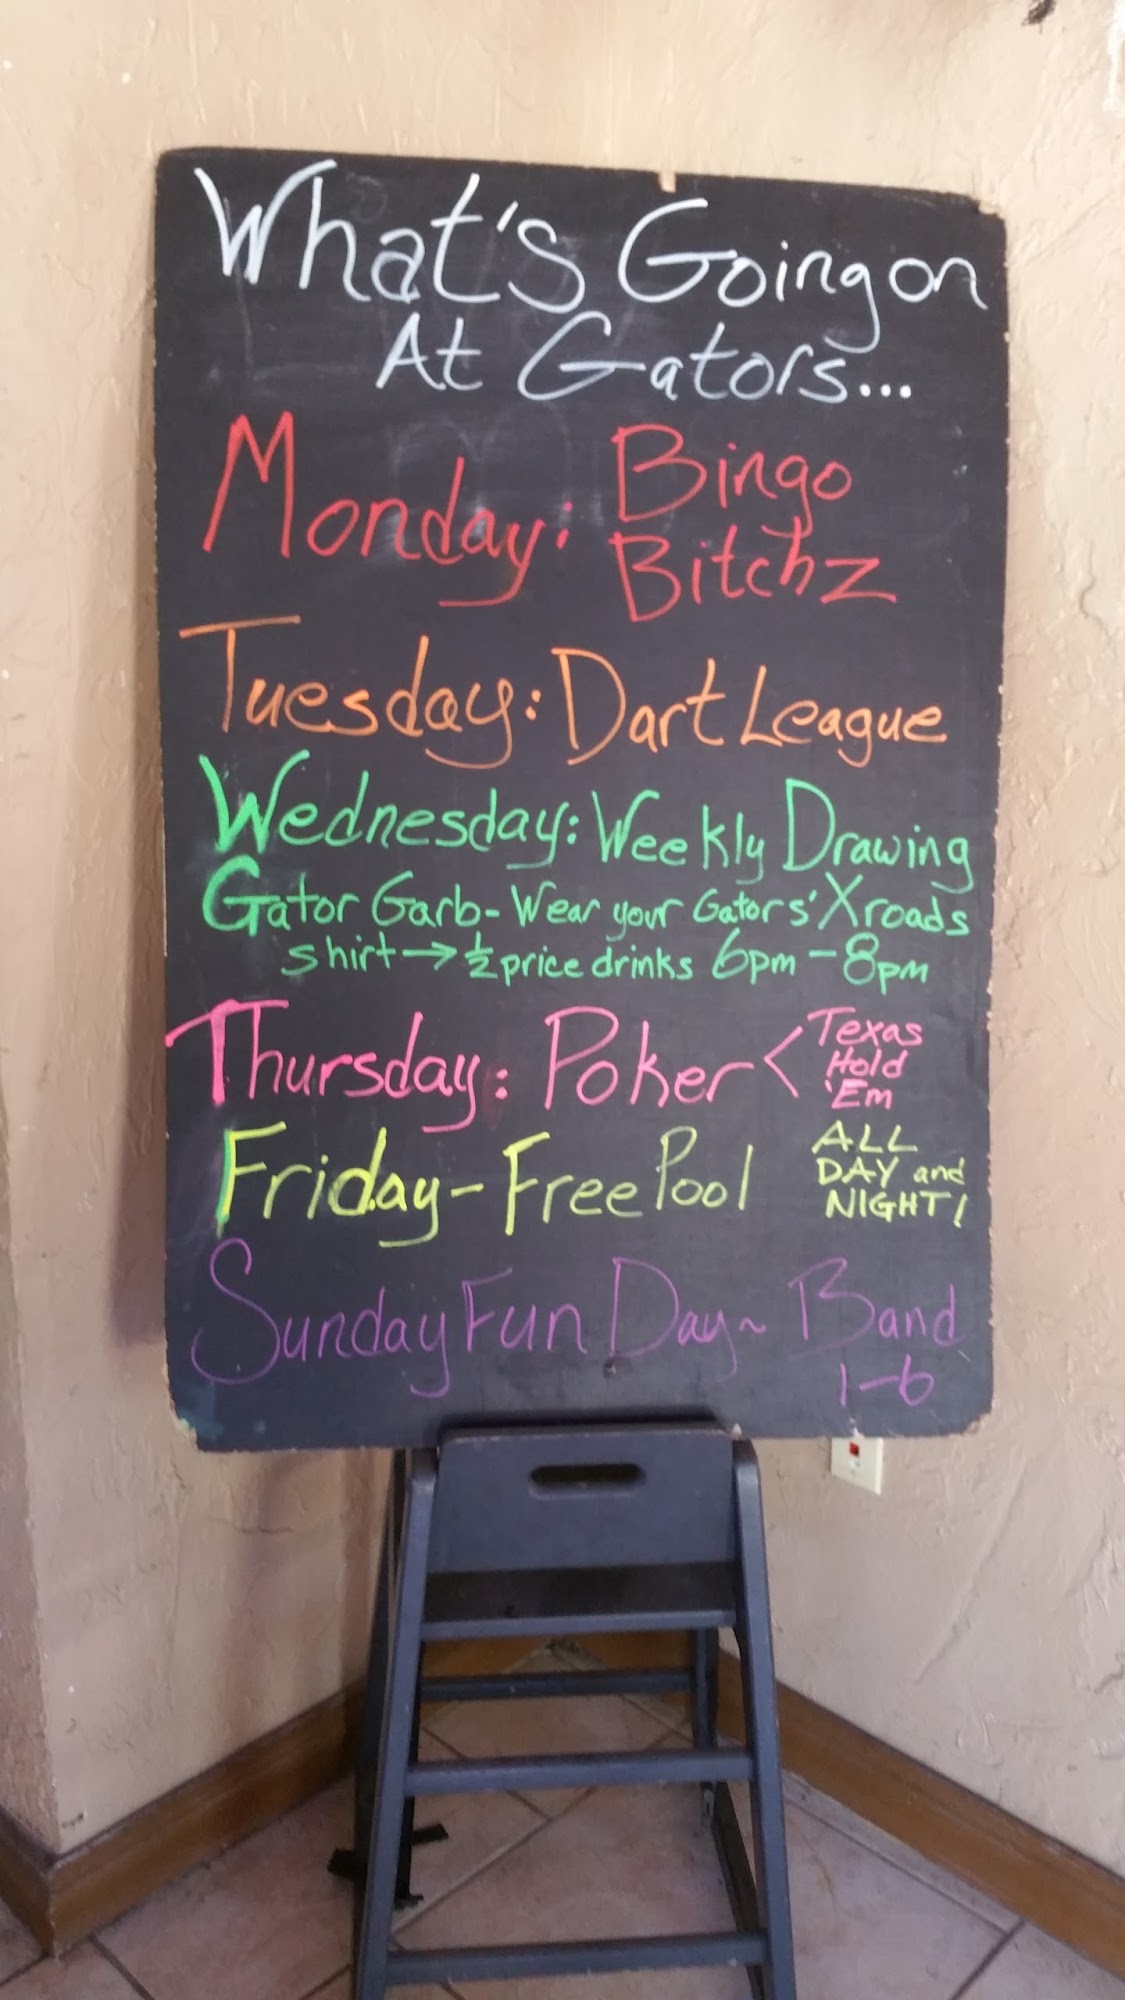 What's Going on
At Gators...
Monday: Bingo
Bitchz
Tuesday: Dart League
Wednesday: Weekly Drawing
Gator Garb- Wear your Gators' Xroads
shirt → ½ price drinks 6pm - 8pm
Thursday: Poker < Texas
Hold
'Em
Friday - Free Pool ALL
DAY and
NIGHT!
Sunday Fun Day ~ Band
1-6